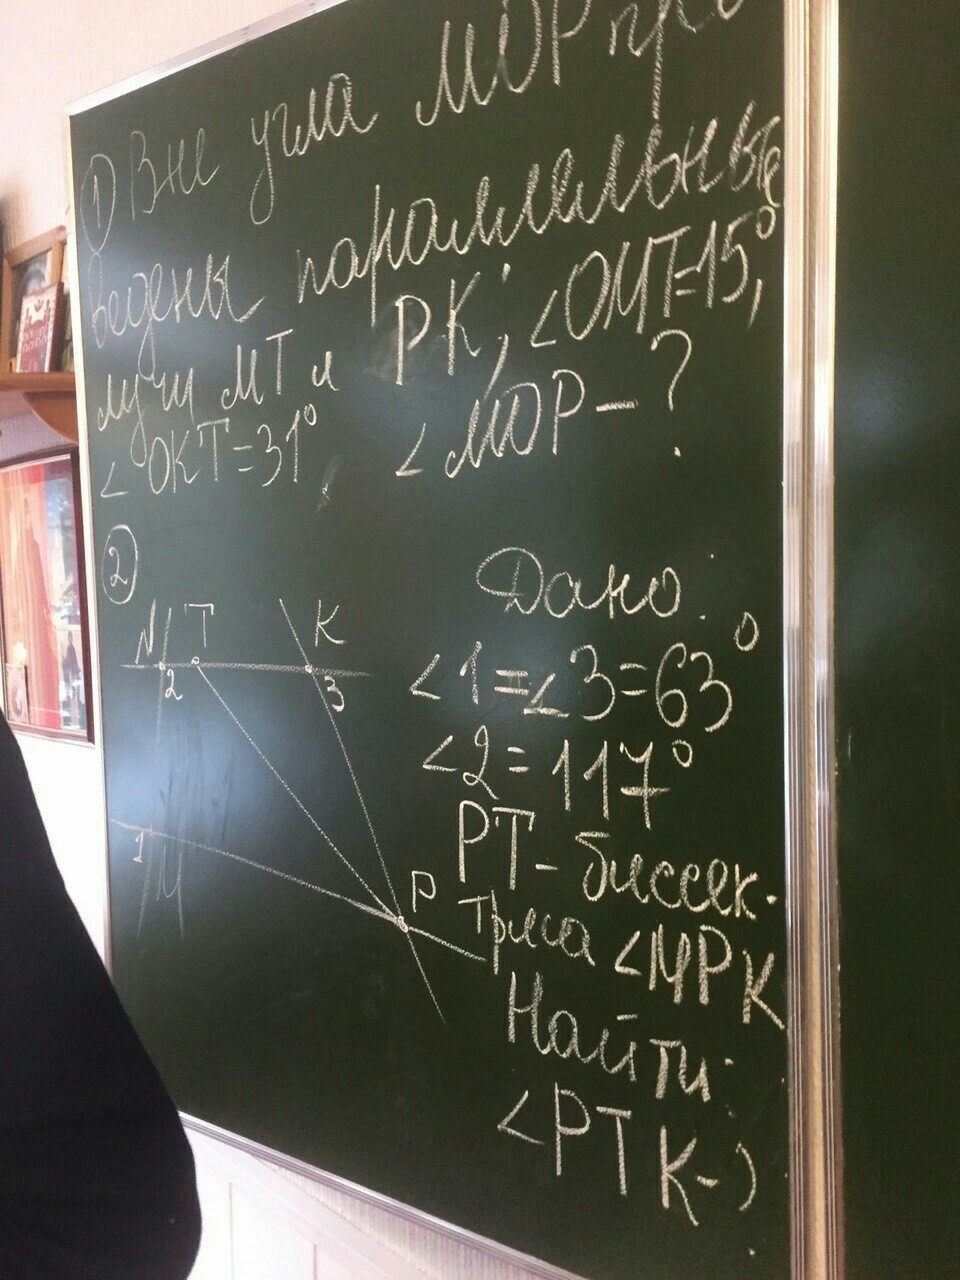 1) Вне угла МОР про
ведены параллельные
лучи МТ и РК, ∠ОМТ=15°,
∠ОКТ=31°, ∠МОР-?
2
N T K
2 3
1 M P
Дано:
∠1=∠3=63°
∠2=117°
РТ-биссек-
триса ∠МРК
Найти:
∠РТК-?